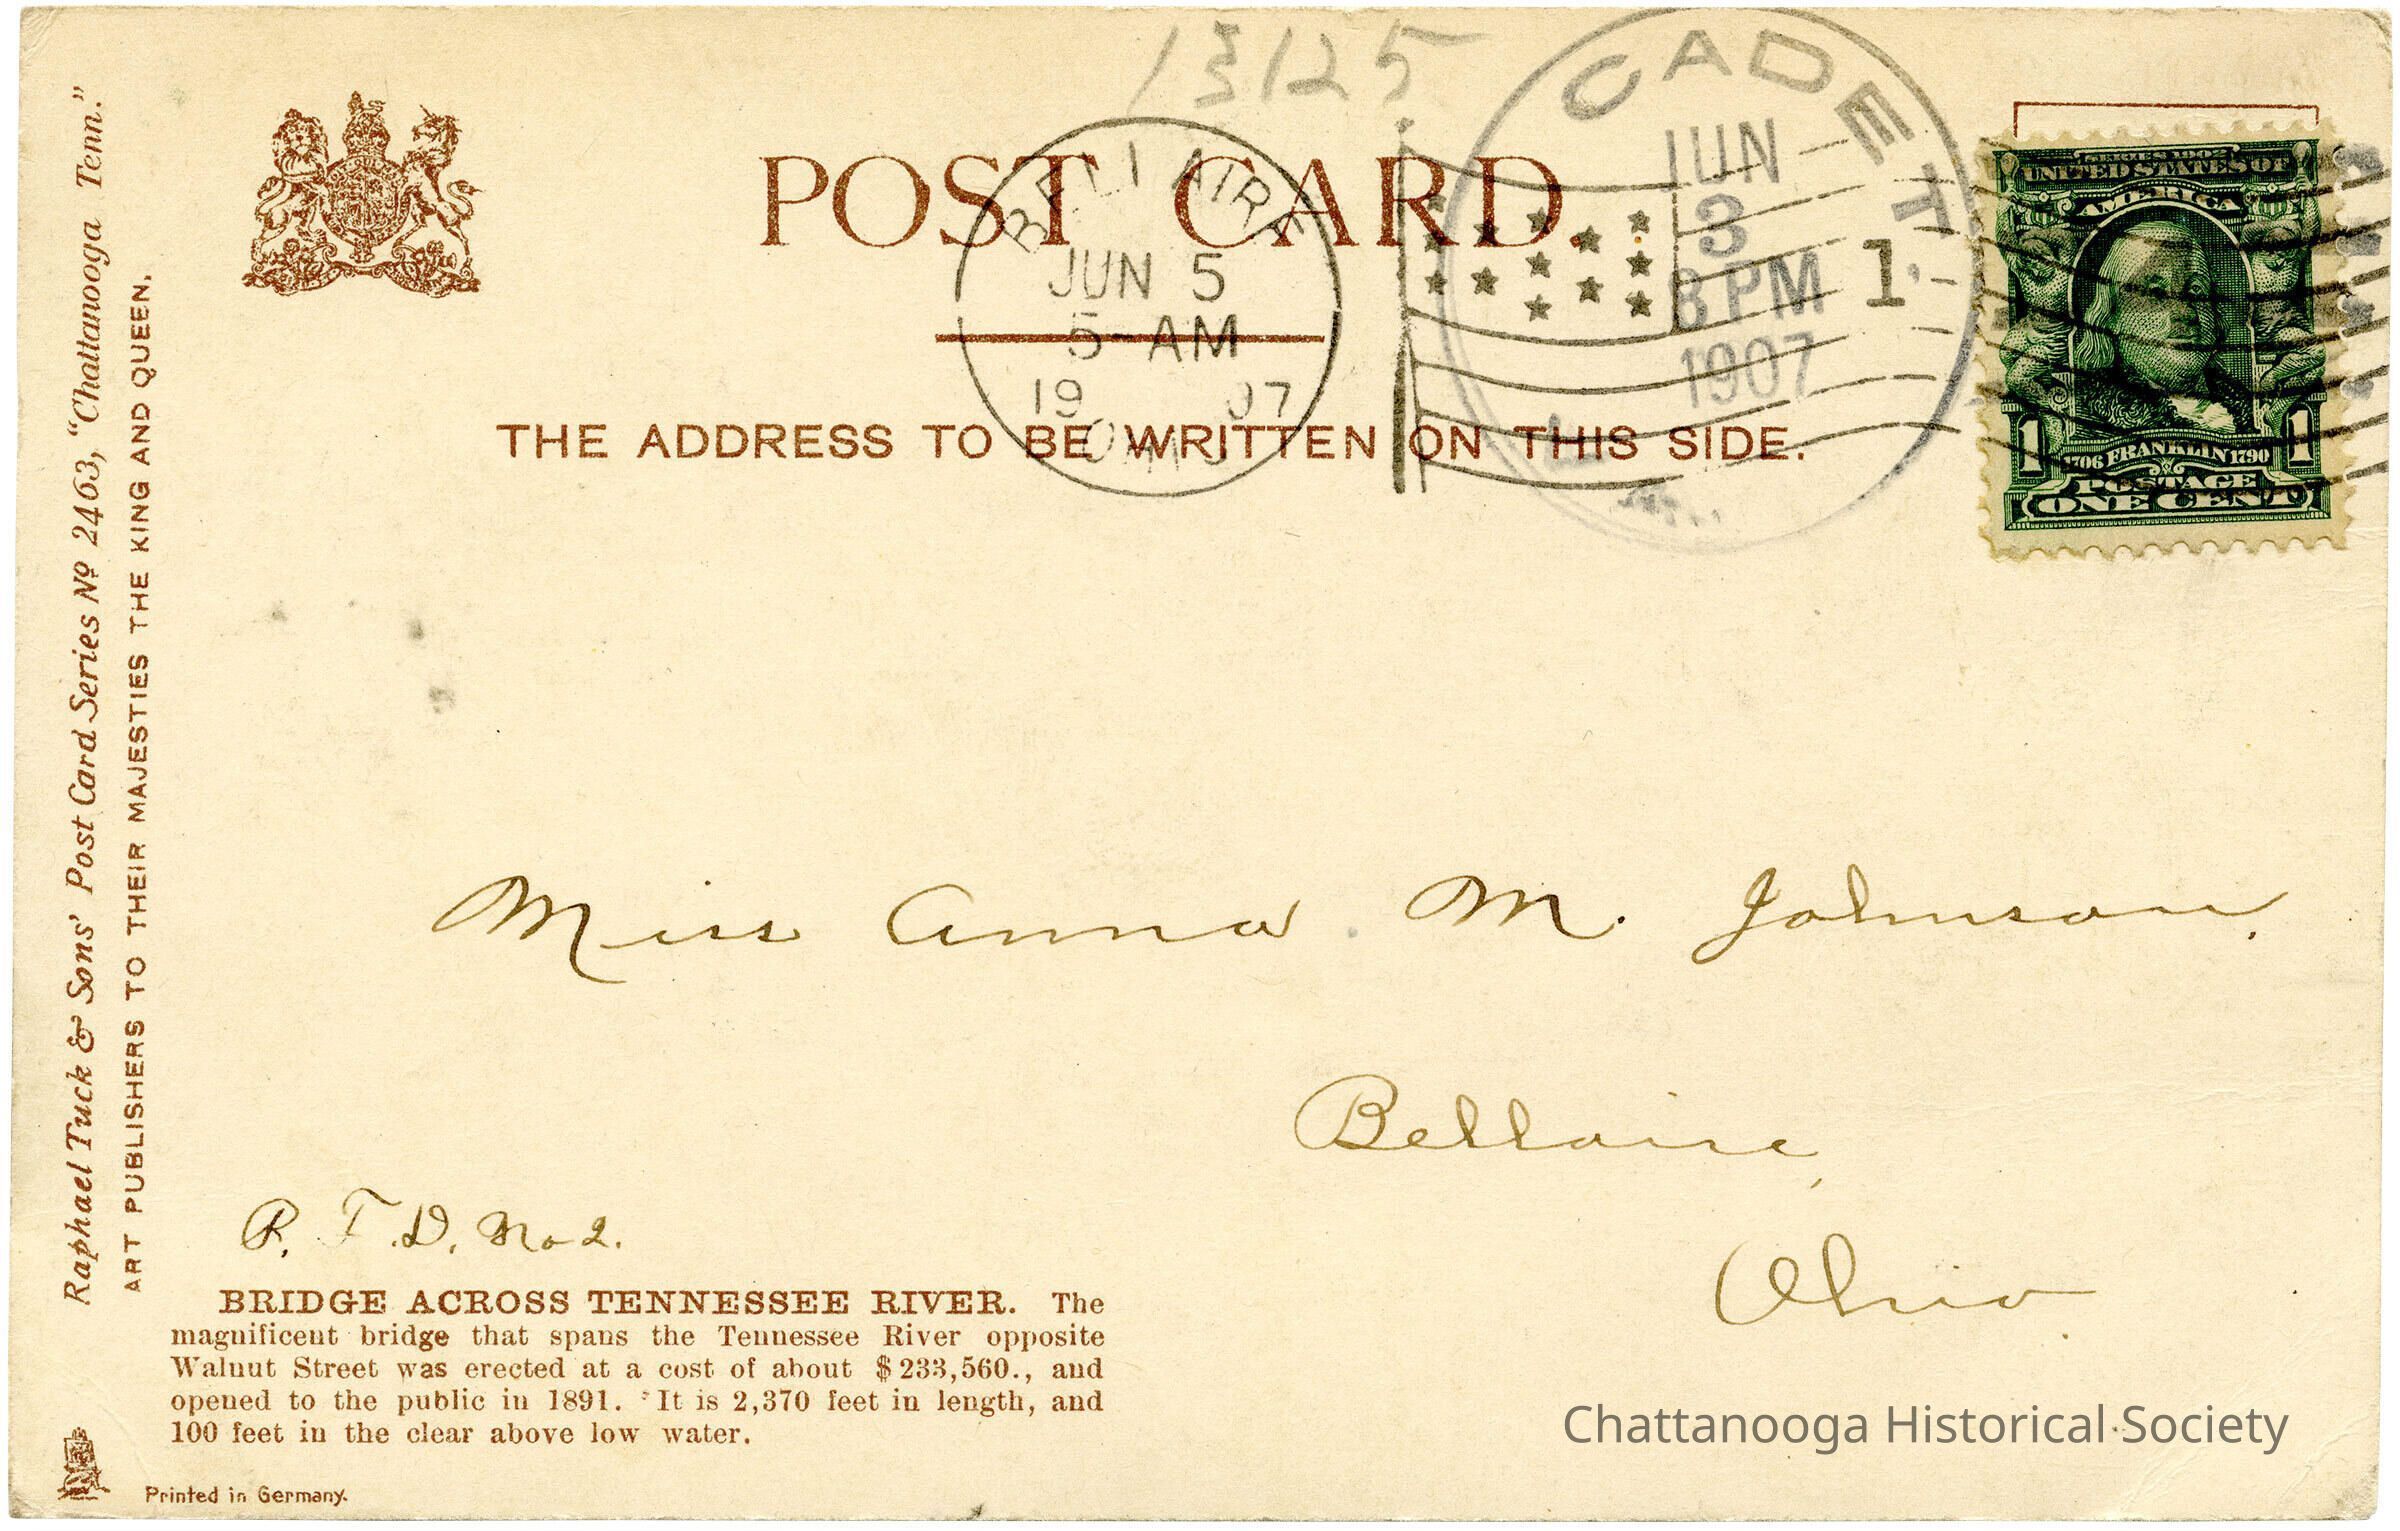 13125
CADET
JUN
3
8 PM
1907
BELLAIRE
JUN 5
5-AM
19 07
OHIO
1
POST CARD.
THE ADDRESS TO BE WRITTEN ON THIS SIDE.
SERIES 1902
UNITED STATES OF
AMERICA
1 1
1706 FRANKLIN 1790
POSTAGE
ONE CENT
Raphael Tuck & Sons' Post Card Series Nº 2463, "Chattanooga Tenn."
ART PUBLISHERS TO THEIR MAJESTIES THE KING AND QUEEN.
Miss Anna M. Johnson.
Bellaire,
Ohio.
R. F. D. No 2.
BRIDGE ACROSS TENNESSEE RIVER. The
magnificent bridge that spans the Tennessee River opposite
Walnut Street was erected at a cost of about $233,560., and
opened to the public in 1891. It is 2,370 feet in length, and
100 feet in the clear above low water.
Printed in Germany.
Chattanooga Historical Society